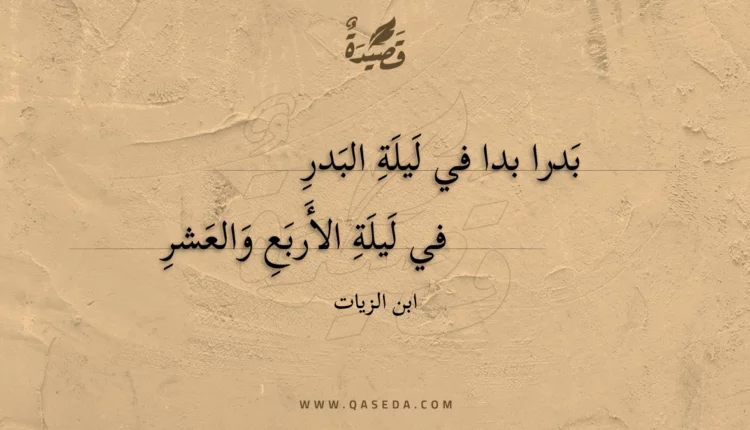 قَصِيْدَةٌ
بَدرا بدا في لَيلَةِ البَدرِ
في لَيلَةِ الأَربَعِ وَالعَشرِ
ابن الزيات
WWW.QASEDA.COM